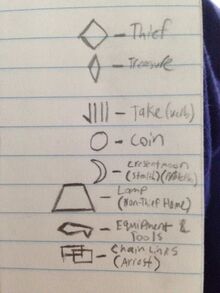 - Thief
- Treasure
- Take (verb)
- Coin
Cresent moon
(Stealth)
- Lamp
(Non-Thief Home)
- Equipment &
Tools
- Chain Links
(Arrest)